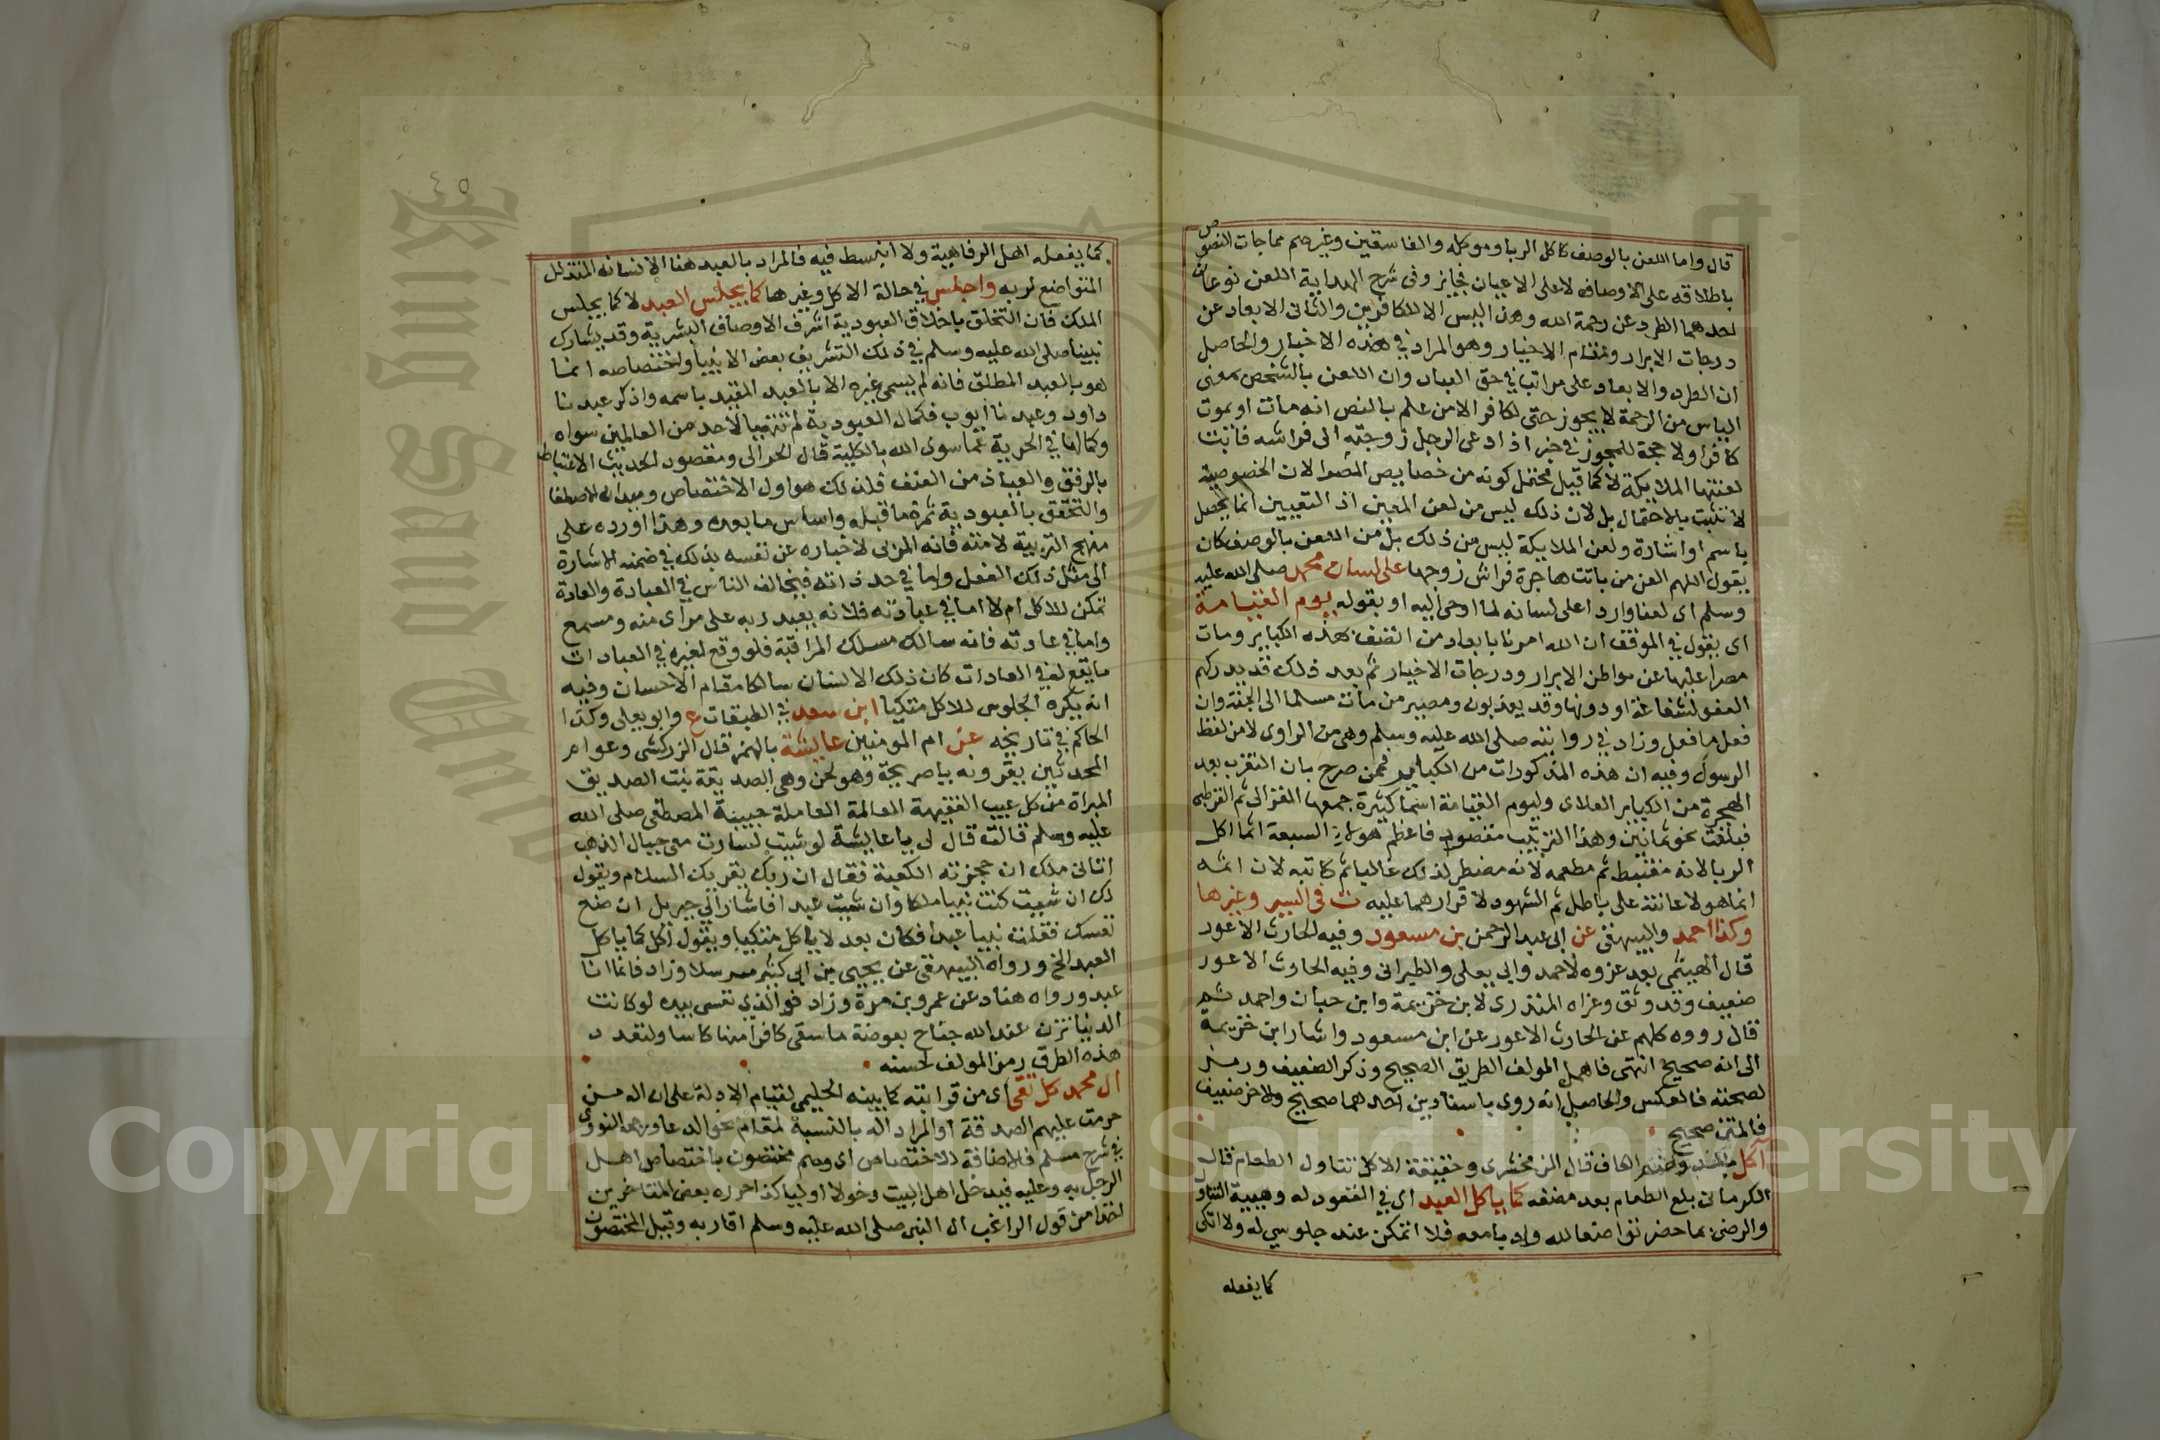 قال واما اللعن بالوصف كاكل الربا وموكله والفاسقين وغيرهم مما جات النصوص
باطلاقه على الاوصاف لا على الاعيان فجايز وفى شرح الهداية اللعن نوعان
احدهما الطرد عن رحمة الله وهذا ليس الا للكافرين والثانى الابعاد عن
درجات الابرار ومقام الاخيار وهو المراد فى هذه الاخبار والحاصل
ان الطرد والابعاد على مراتب فى حق العباد وان اللعن بالشخص بمعنى
الياس من الرحمة لا يجوز حتى لكافر الا من علم بالنص انه مات او يموت
كافرا ولا حجة للمجوز فى خبر اذا دعى الرجل زوجته الى فراشه فابت
لعنتها الملايكة لا كما قيل محتمل كونه من خصايص اذ الخصوصية
لا تثبت بالاحتمال بل لان ذلك ليس من لعن المعين اذ التعيين انما يحصل
باسم او اشارة ولعن الملايكة ليس من ذلك بل من اللعن بالوصف كان
يقول اللهم العن من باتت هاجرة فراش زوجها على لسان محمد صلى الله عليه
وسلم اى لعنا واردا على لسانه لما اوحى اليه او بقوله يوم القيامة
اى يقول فى الموقف ان الله امرنا بابعاد من اتصف بهذه الكباير ومات
مصرا عليها عن مواطن الابرار ودرجات الاخيار ثم بعد ذلك قد يدركهم
العفو لشفاعة او دونها وقد يعذبون ومصير من مات مسلما الى الجنة وان
فعل ما فعل وزاد فى روايته صلى الله عليه وسلم وهى من الراوى لا من لفظ
الرسول وفيه ان هذه المذكورات من الكباير فمن صرح بان التعرب بعد
الهجرة من الكباير العلاى وليوم القيامة اسما كثيرة جمعها الغزالى ثم القرطبى
فبلغت نحو ثمانين وهذا الترتيب مقصود فاعظم هولاء السبعة اثما اكل
الربا لانه مغتبط ثم مطعمه لانه مضطر لذلك غالبا ثم كاتبه لان اثمه
انما هو لاعانته على باطل ثم الشهود لاقرارهما عليه ن فى السير وغيرها
وكذا احمد والبيهقى عن ابى عبد الرحمن بن مسعود وفيه الحارث الاعور
قال الهيتمى بعد عزوه لاحمد وابى يعلى والطبرانى وفيه الحارث الاعور
ضعيف وقد وثق وعزاه المنذرى لابن خزيمة وابن حبان واحمد ثم
قال رووه كلهم عن الحارث الاعور عن ابن مسعود واشار ابن خزيمة
الى انه صحيح انتهى فاهمل المولف الطريق الصحيح وذكر الضعيف ورمز
لصحته فالعكس والحاصل انه روى باسنادين احدهما صحيح والاخر ضعيف
فالمتن صحيح
آكل الكاف قال الزمخشرى وحقيقة الاكل تناول الطعام قال
الكرمانى بلع الطعام بعد مضغه كما ياكل العبد اى فى القعود له وهيية التناو
والرضى بما حضر تواضعا لله وادبا معه فلا اتمكن عند جلوسى له ولا اتكى
كما يفعله
٤٥
كما يفعله اهل الرفاهية ولا انبسط فيه فالمراد بالعبد هنا الانسان المتذلل
المتواضع لربه واجلس فى حالة الاكل وغيرها كما يجلس العبد لا كما يجلس
الملك فان التخلق باخلاق العبودية اشرف الاوصاف البشرية وقد يشارك
نبينا صلى الله عليه وسلم فى ذلك التشريف بعض الانبيا واختصاصه انما
هو بالعبد المطلق فانه لم يسمى غيره الا بالعبد المقيد باسمه واذكر عبدنا
داود وعبدنا ايوب فكمال العبودية لم تتهيا لاحد من العالمين سواه
وكمالها فى الحرية عما سوى الله بالكلية قال الحرالى ومقصود الحديث الاغتباط
بالرفق والعياذ من العنف فلذلك هو اول الاختصاص ومبدا الاصطفا
والتحقق بالعبودية ثمرة ما قبله واساس ما بعده وهذا اورده على
منهج التربية لامته فانه المربى لاخباره عن نفسه بذلك فى ضمنه الاشارة
الى مثل ذلك الفعل واما فى حد ذاته فيخالف الناس فى العبادة والعادة
تمكن للاكل ام لا اما فى عبادته فلانه يعبد ربه على مراى منه ومسمع
واما فى عادته فانه سالك مسلك المراقبة فلو وقع لغيره فى العبادات
ما يقع له فى العادات كان ذلك الانسان سالكا مقام الاحسان وفيه
انه يكره الجلوس للاكل متكيا ابن سعد فى الطبقات ع وابو يعلى وكذا
الحاكم فى تاريخه عن ام المومنين عايشة بالهمز قال الزركشى وعوام
المحدثين يقرونه بياء صريحة وهو لحن وهى الصديقة بنت الصديق
المبراة من كل عيب الفقيهة العالمة العاملة حبيبة المصطفى صلى الله
عليه وسلم قالت قال لى يا عايشة لو شيت لسارت معى جبال الذهب
اتانى ملك ان حجزته الكعبة فقال ان ربك يقريك السلام ويقول
لك ان شيت كنت نبيا ملكا وان شيت عبدا فاشار الى جبريل ان ضع
نفسك فقلت نبيا عبدا فكان بعد لا ياكل متكيا ويقول آكل كما ياكل
العبد الخ ورواه البيهقى عن يحيى بن ابى كثير مرسلا وزاد فانما انا
عبد ورواه هناد عن عمرو بن مرة وزاد فوالذى نفسى بيده لو كانت
الدنيا تزن عند الله جناح بعوضة ما سقى كافرا منها كاسا ولتعدد
هذه الطرق رمز المولف لحسنه
ال محمد كل تقى اى من قرابته كما بينه الحليمى لقيام الادلة على ان اله من
حرمت عليهم الصدقة او المراد اله بالنسبة لمقام نحو الدعا النووى
فى شرح مسلم فالاضافة للاختصاص اى وهم مختصون باختصاص اهل
الرجل به وعليه فيدخل اهل البيت دخولا اوليا كذا حرره بعض المتاخرين
اخذا من قول الراغب ال النبى صلى الله عليه وسلم اقاربه وقيل المختصون
King Saud University
Copyright © King Saud University